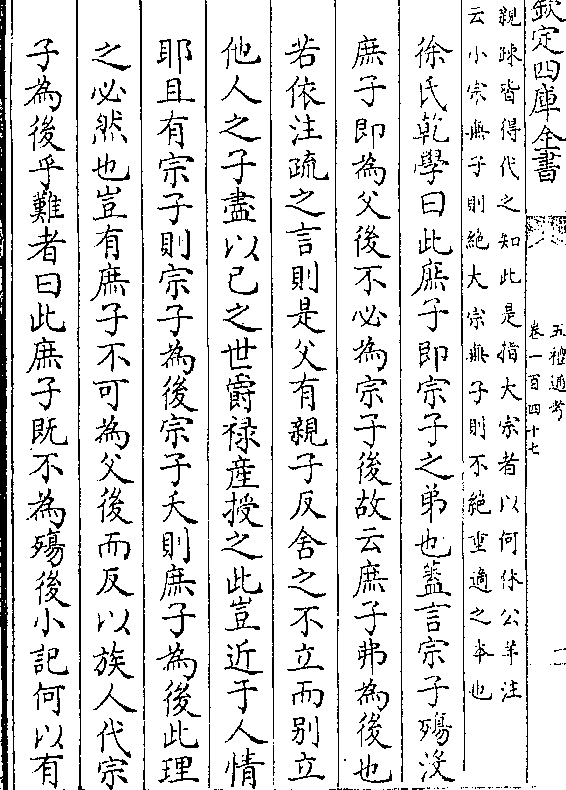 欽定四庫全書
五禮通考
卷一百四十七
親疎皆得代之知此是指大宗者以何休公羊注
云小宗無子則絶大宗無子則不絶重適之本也
徐氏乾學曰此庶子即宗子之弟也葢言宗子殤没
庶子即為父後不必為宗子後故云庶子弗為後也
若依注疏之言則是父有親子反舍之不立而别立
他人之子盡以已之世爵禄産授之此豈近于人情
耶且有宗子則宗子為後宗子夭則庶子為後此理
之必然也豈有庶子不可為父後而反以族人代宗
子為後乎難者曰此庶子既不為殤後小記何以有